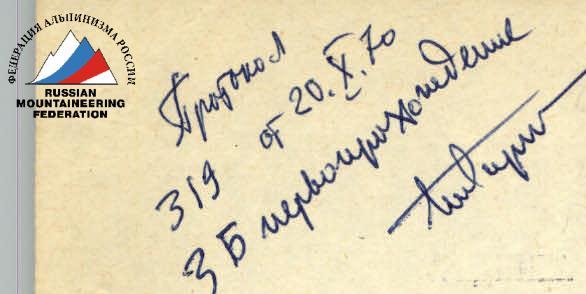 ФЕДЕРАЦИЯ АЛЬПИНИЗМА РОССИИ
RUSSIAN
MOUNTAINEERING
FEDERATION
Протокол
319 от 20.X.70
3Б первопрохождение